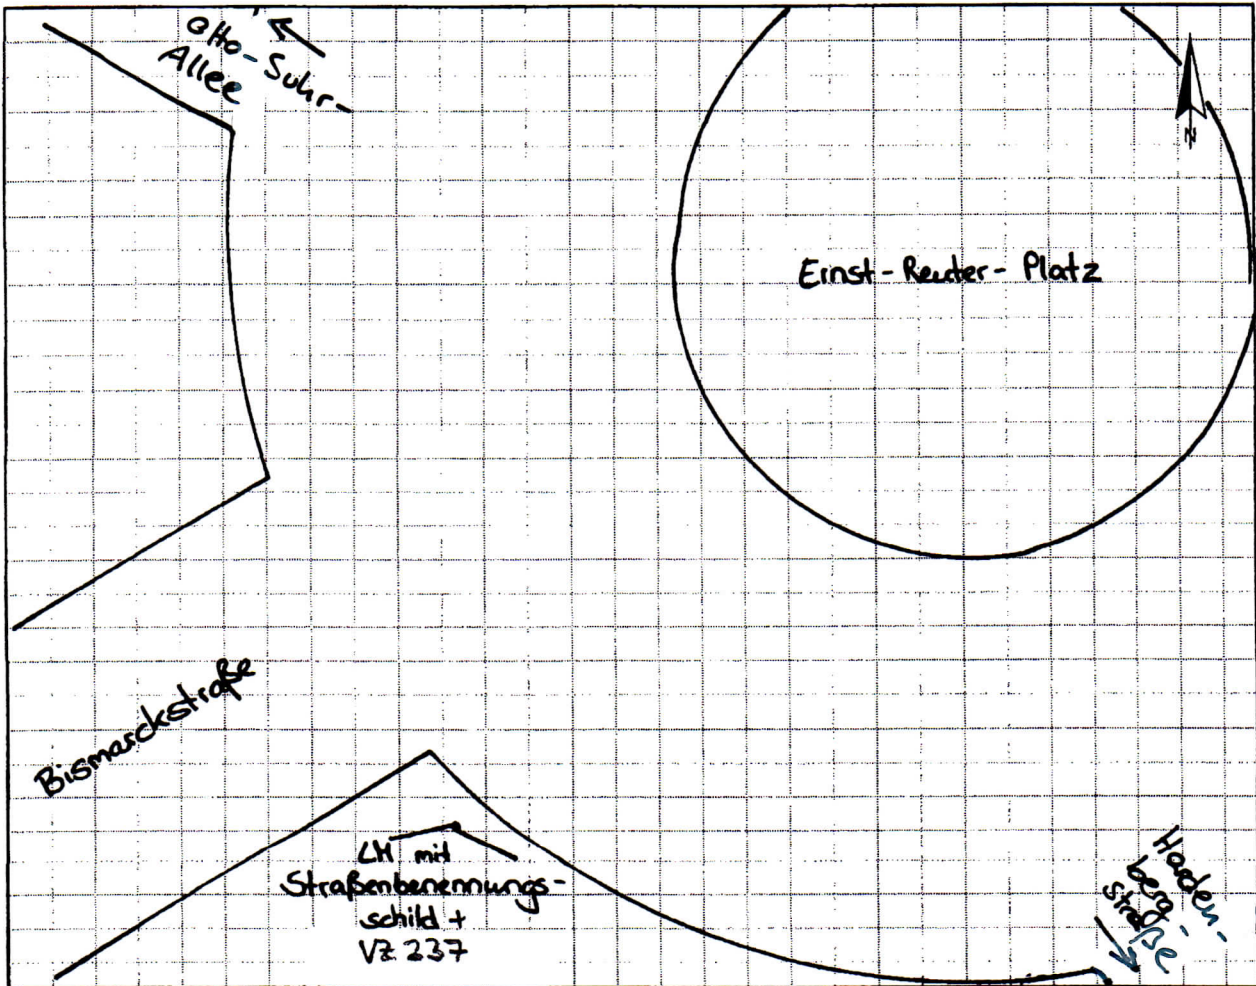 Otto-Suhr-
Allee
N
Ernst-Reuter-Platz
Bismarckstraße
LM mit
Straßenbenennungs-
schild +
VZ 237
Harden-
berg-
straße